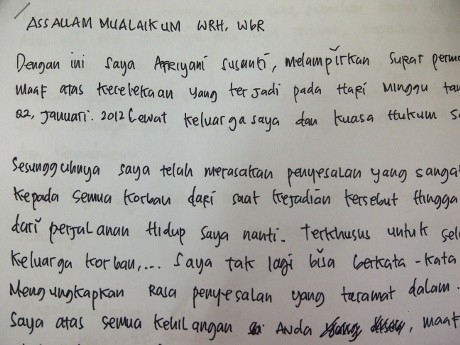 ASSALLAM MUALAIKUM WRH, WbR
Dengan ini saya Afriyani susanti, melampirkan surat perm
maaf atas kecelekaan yang terjadi pada Hari Minggu ta
22, januari. 2012 Lewat keluarga saya dan kuasa Hukum s
Sesungguhnya saya telah merasakan penyesalan yang sanga
kepada semua korban dari saat kejadian tersebut hingga
dari perjalanan Hidup saya nanti. Terkhusus untuk sel
keluarga korban,... Saya tak lagi bisa berkata-kata
Mengungkapkan Rasa penyesalan yang teramat dalam.
Saya atas semua kehilangan Anda , maaf